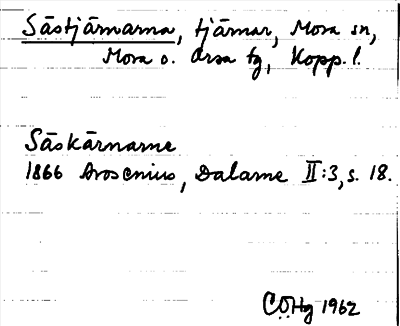 Såstjärnarna, tjärnar, Mora sn,
Mora o. Orsa tg, Kopp. l.
Såskärnarne
1866 Arosenius, Dalarne II:3, s. 18.
COHg 1962